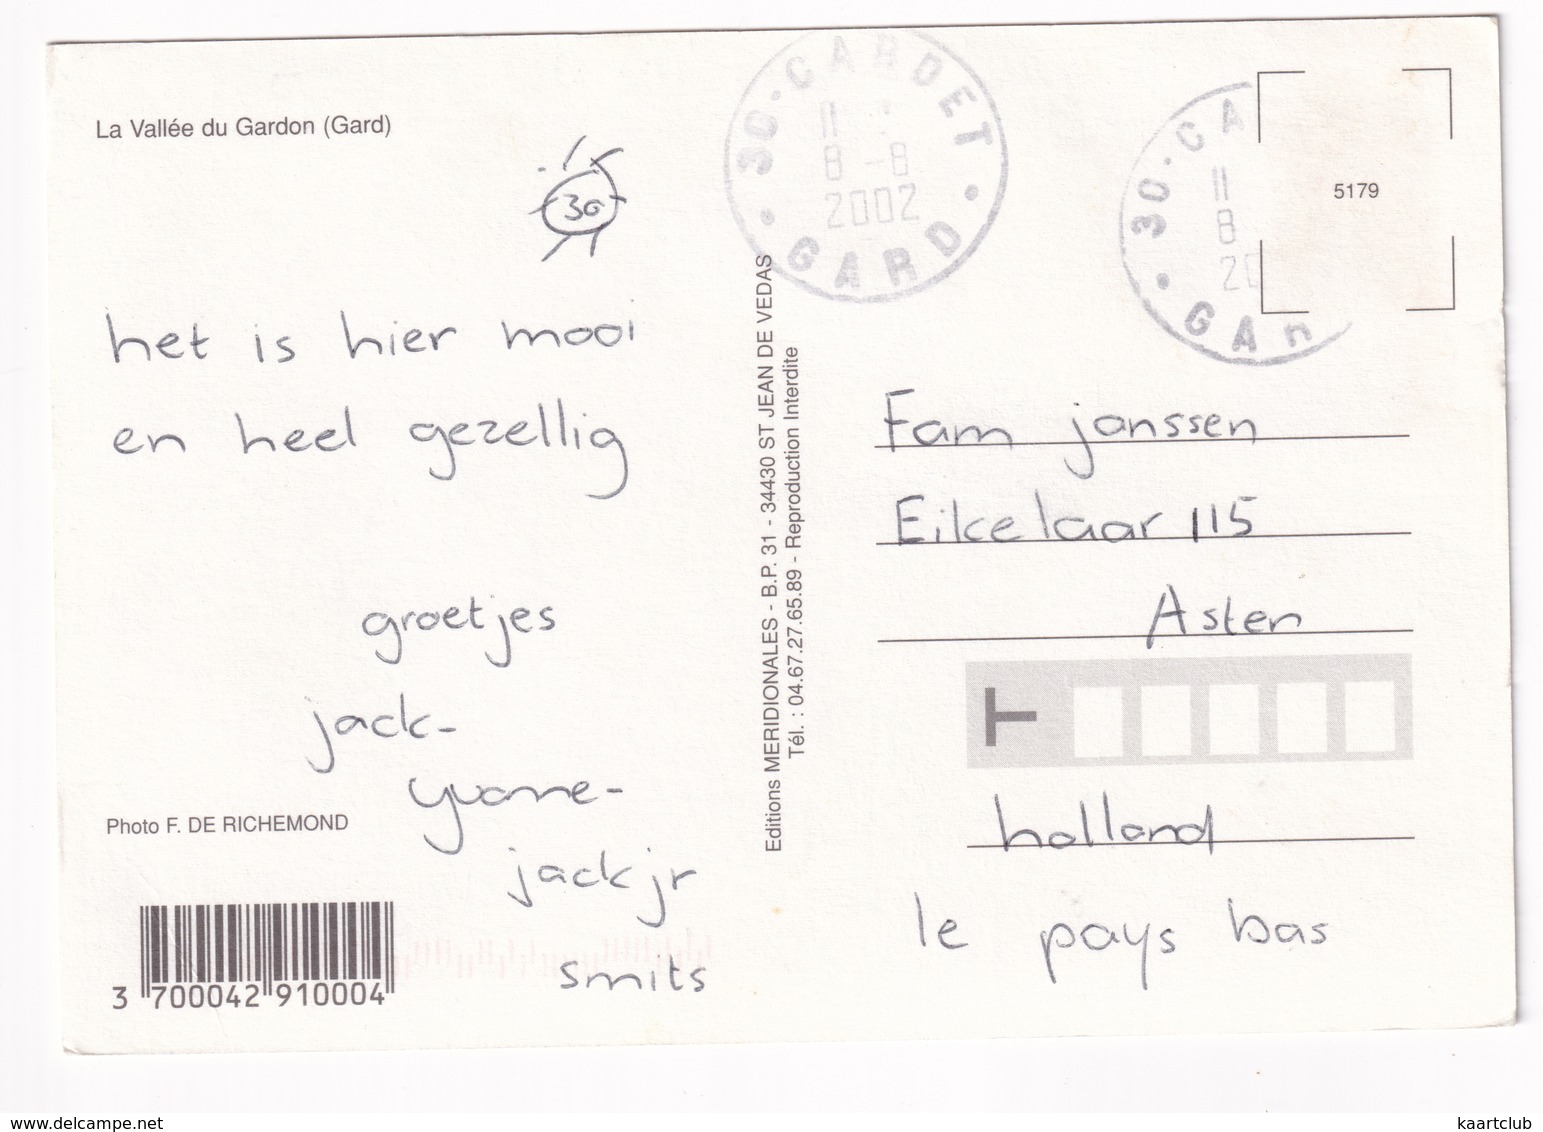 La Vallée du Gardon (Gard)
30
het is hier mooi
en heel gezellig
groetjes
jack-
yvonne-
jack jr
smits
Photo F. DE RICHEMOND
3 700042 910004
Editions MERIDIONALES - B.P. 31 - 34430 ST JEAN DE VEDAS
Tél. : 04.67.27.65.89 - Reproduction Interdite
30 · CARDET
11
8 -8
2002
GARD
30 · CA
11
8
20
GAR
5179
Fam janssen
Eikelaar 115
Asten
T
holland
le pays bas
www.delcampe.net
kaartclub